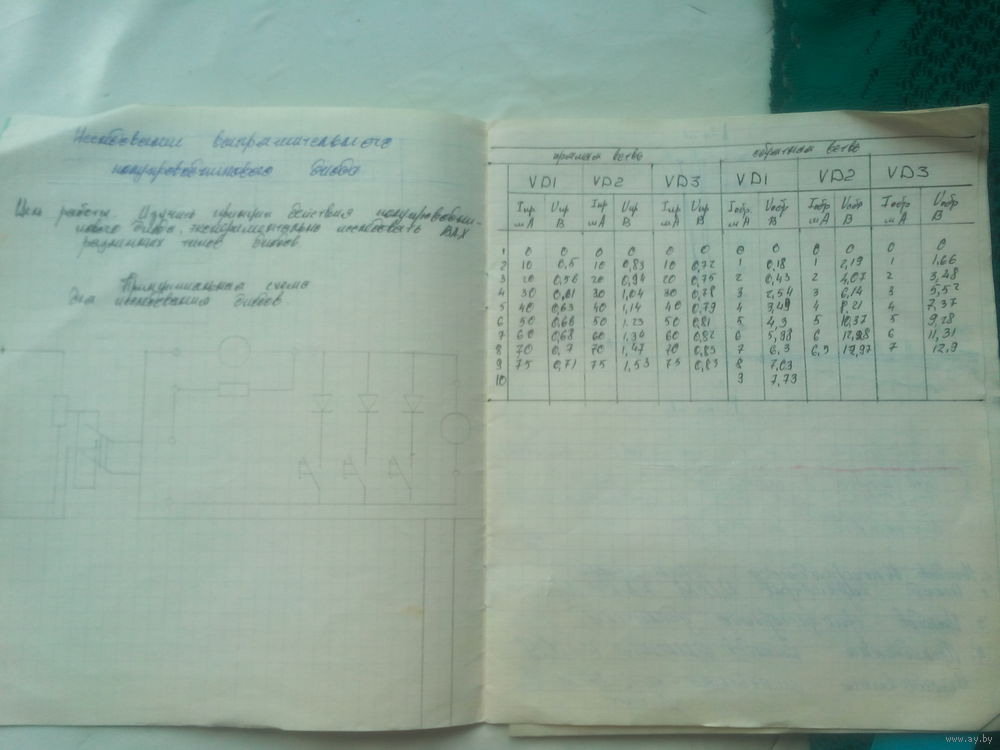 Исследование выпрямительного
полупроводникового диода
Цель работы. Изучить принцип действия полупроводни-
кового диода, экспериментально исследовать ВАХ
различных типов диодов.
Принципиальная схема
для исследования диодов.
прямая ветвь обратная ветвь
VD1 VD2 VD3 VD1 VD2 VD3
Iпр мА Uпр В Iпр мА Uпр В Iпр мА Uпр В Iобр мА Uобр В Iобр мА Uобр В Iобр мА Uобр В
1 0 0 0 0 0 0 0 0 0 0 0 0
2 10 0,5 10 0,83 10 0,72 1 0,18 1 2,19 1 1,66
3 20 0,56 20 0,94 20 0,75 2 0,43 2 4,07 2 3,48
4 30 0,61 30 1,04 30 0,78 3 2,54 3 6,14 3 5,52
5 40 0,63 40 1,14 40 0,79 4 3,49 4 8,21 4 7,37
6 50 0,66 50 1.23 50 0,81 5 4,3 5 10,37 5 9,28
7 60 0,68 60 1,34 60 0,82 6 5,98 6 12,28 6 11,31
8 70 0,7 70 1,47 70 0,83 7 6,3 6,9 12,97 7 12,9
9 75 0,71 75 1,53 75 0,83 8 7,03
10 9 7,73
www.ay.by